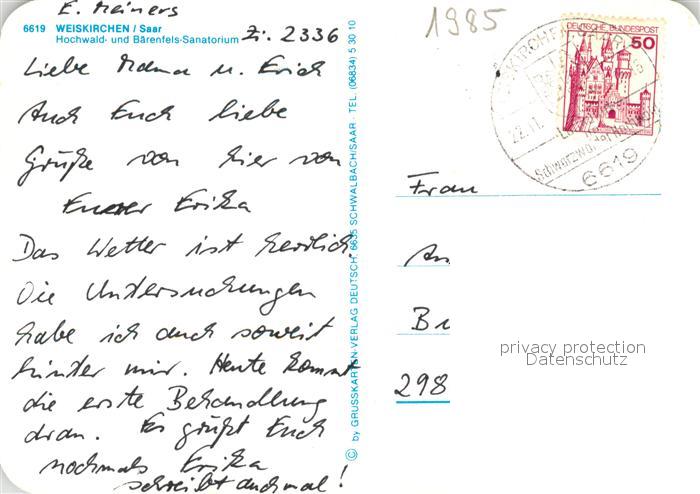 E. Meiners
6619 WEISKIRCHEN / Saar
Hochwald- und Bärenfels-Sanatorium
Zi. 2336
Liebe Mama u. Erich
Auch Euch liebe
Grüße von hier von
Eurer Erika
Das Wetter ist herrlich.
Die Untersuchungen
habe ich auch soweit
hinter mir. Heute kommt
die erste Behandlung
dran. Es grüßt Euch
nochmals Erika
schreibt auch mal!
© by GRUSSKARTEN-VERLAG DEUTSCH, 6635 SCHWALBACH/SAAR · TEL. (06834) 5 30 10
1985
DEUTSCHE BUNDESPOST
50
Schwarzwälder Hochwald
6619
Frau
An
Br
298
privacy protection
Datenschutz